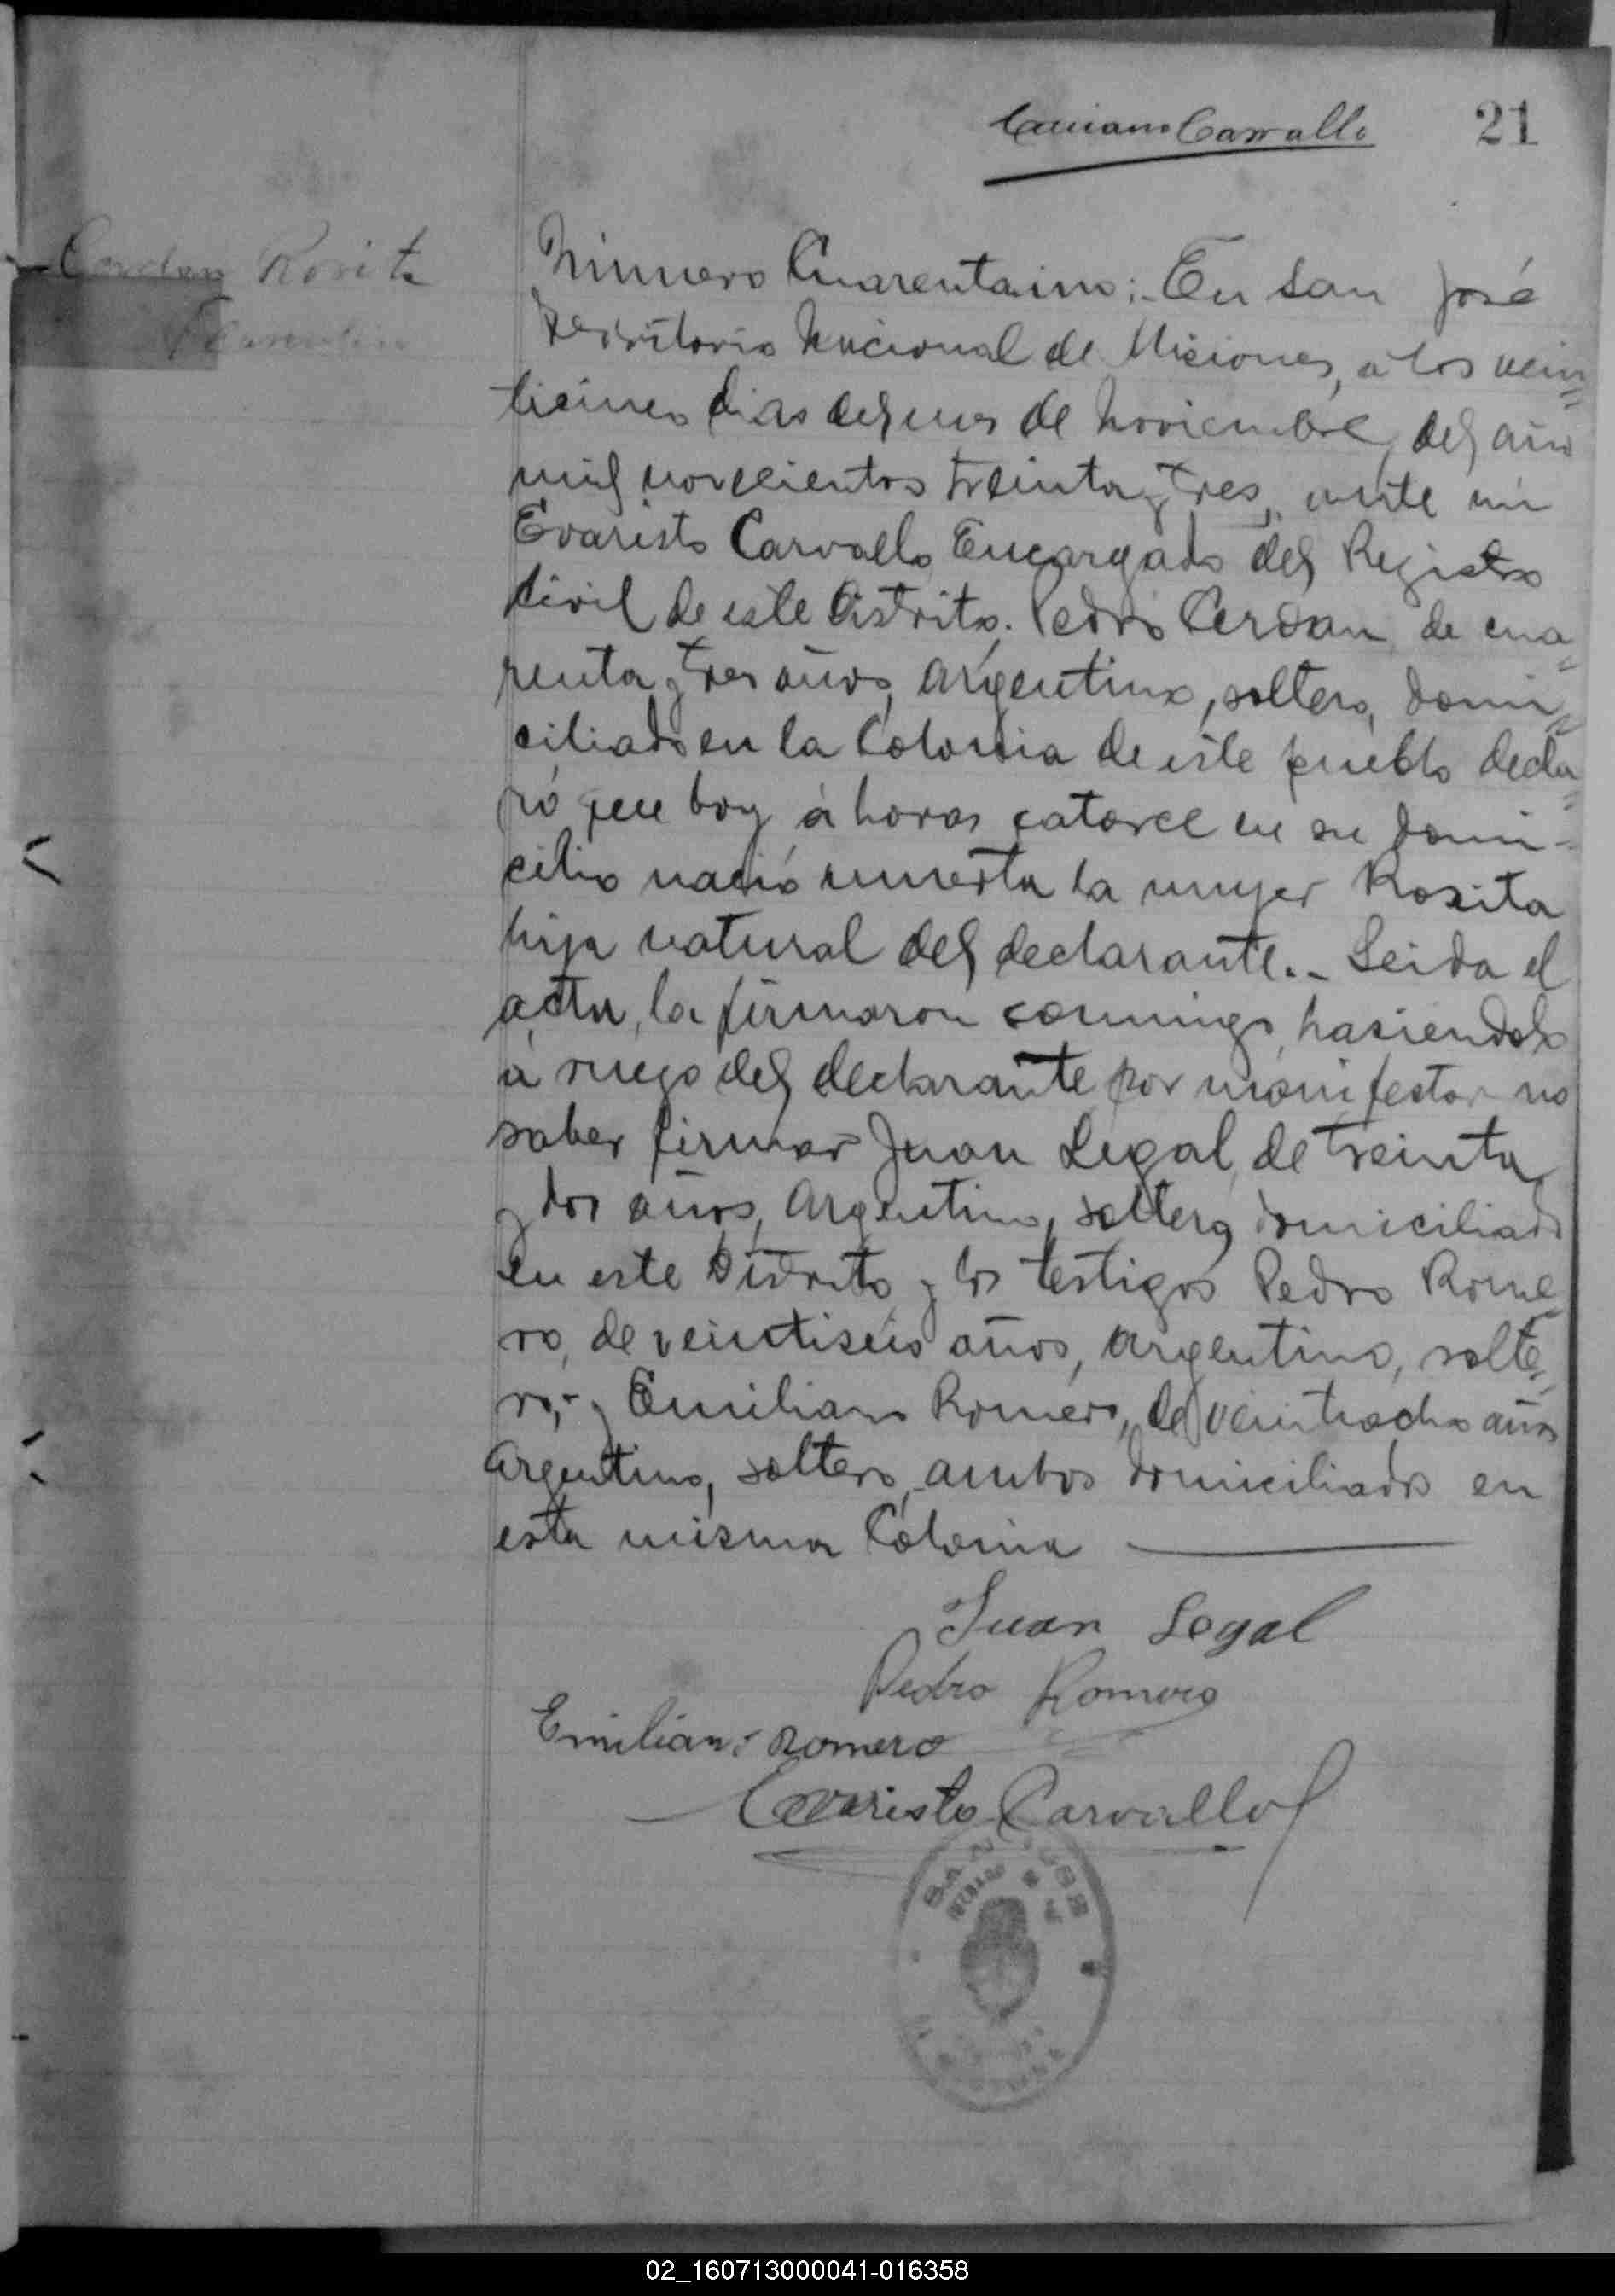 Luciano Carvallo
21
Cerdan Rosita
Número Cuarentaiuno;- En San José
Territorio Nacional de Misiones, á los vein=
ticinco dias del mes de Noviembre, del año
mil novecientos treinta y tres, ante mi
Evaristo Carvallo Encargado del Registro
Civil de este Distrito. Pedro Cerdan, de cua=
renta y tres años, argentino, soltero, domi=
ciliado en la Colonia de este pueblo decla=
ró que hoy á horas catorce en su domi-
cilio nació muerta la mujer Rosita
hija natural del declarante.- Leida el
acta, la firmaron conmigo, hasiendolo
á ruego del declarante por manifestar no
saber firmar Juan Legal, de treinta
y dos años, Argentino, soltero, domiciliado
en este Distrito y los testigos Pedro Rome=
ro, de veintiseis años, argentino, solte=
ro,- y Emiliano Romero, de veintiocho años
argentino, soltero, ambos domiciliados en
esta misma Colonia
Juan Legal
Pedro Romero
Emiliano Romero
Evaristo Carvallo
SAN JOSE
02_160713000041-016358